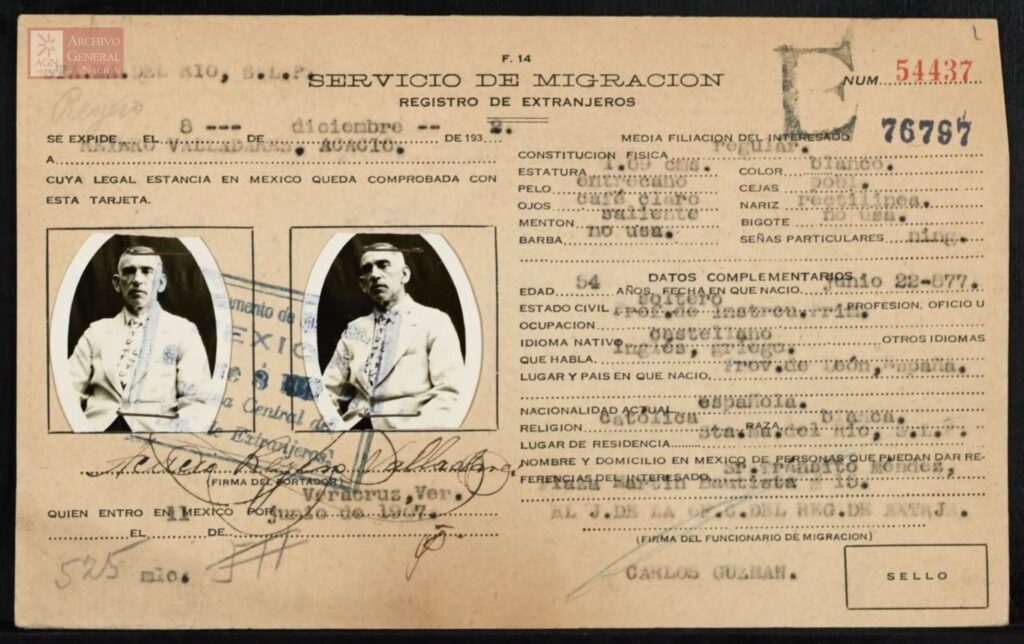 ARCHIVO
GENERAL
AGN
NACIÓN
F. 14
DEL RIO, S.L.P.
SERVICIO DE MIGRACION
E
NUM. 54437
REGISTRO DE EXTRANJEROS
76797
SE EXPIDE EL 8 --- DE diciembre -- DE 193 2.
A VALLADARES, ACACIO.
CUYA LEGAL ESTANCIA EN MEXICO QUEDA COMPROBADA CON
ESTA TARJETA.
MEDIA FILIACION DEL INTERESADO
CONSTITUCION FISICA regular.
ESTATURA 1.69 cms. COLOR blanco.
PELO entrecano CEJAS pobl.
OJOS café claro NARIZ rectilínea.
MENTON saliente BIGOTE no usa.
BARBA no usa. SEÑAS PARTICULARES ning.
DATOS COMPLEMENTARIOS
EDAD 54 AÑOS, FECHA EN QUE NACIO. junio 22-877.
ESTADO CIVIL soltero PROFESION, OFICIO U
OCUPACION Prof.de
IDIOMA NATIVO castellano OTROS IDIOMAS
QUE HABLA. Inglés, griego.
LUGAR Y PAIS EN QUE NACIO. Prov.de León, España.
NACIONALIDAD ACTUAL española.
RELIGION católica RAZA blanca.
LUGAR DE RESIDENCIA Sta.Ma.del Río, S.L.P.
NOMBRE Y DOMICILIO EN MEXICO DE PERSONAS QUE PUEDAN DAR RE-
FERENCIAS DEL INTERESADO. Sr.Tránsito Méndez,
Plaza Bautista # 16.
MEXICO
8
Central de
de Extranjeros
(FIRMA DEL PORTADOR)
QUIEN ENTRO EN MEXICO POR Veracruz,Ver.
EL 11 DE junio de 1907.
525 mlc.
AL J.DE LA OF.C.DEL REG.DE EXTRJS.
(FIRMA DEL FUNCIONARIO DE MIGRACION)
CARLOS GUZMAN.
SELLO